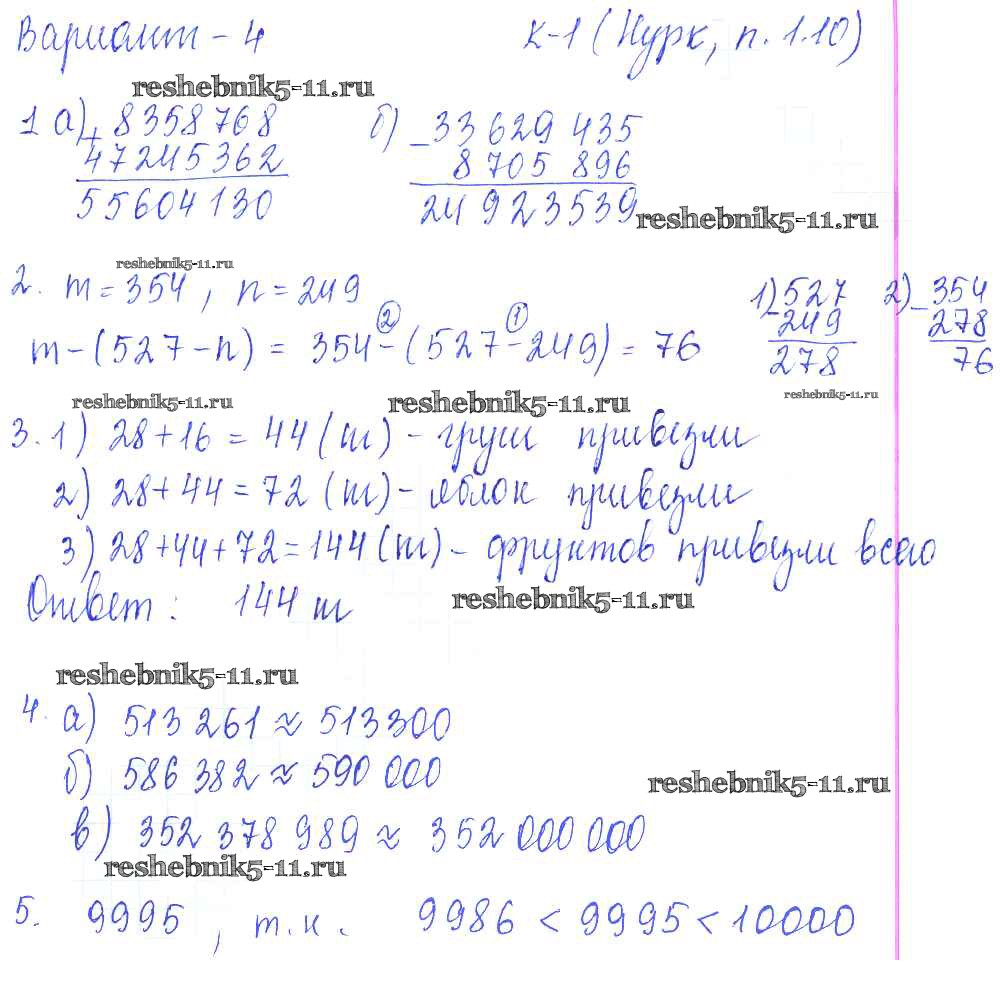 Вариант - 4 К-1 (Нурк, п. 1.10)
reshebnik5-11.ru
1 а) + 8358768 б) - 33 629 435
47245362 8 705 896
55604130 24 923539
reshebnik5-11.ru
reshebnik5-11.ru
2. m = 354, n = 249 1) 527 2) - 354
- 249 278
m - (527 - n) = 354 - (527 - 249) = 76 278 76
② ①
reshebnik5-11.ru reshebnik5-11.ru reshebnik5-11.ru
3. 1) 28 + 16 = 44 (ш) - груш привезли
2) 28 + 44 = 72 (ш) - яблок привезли
3) 28 + 44 + 72 = 144 (ш) - фруктов привезли всего
Ответ: 144 ш
reshebnik5-11.ru
reshebnik5-11.ru
4. а) 513 261 ≈ 513300
б) 586 382 ≈ 590 000
reshebnik5-11.ru
в) 352 378 989 ≈ 352 000 000
reshebnik5-11.ru
5. 9995, т.к. 9986 < 9995 < 10000